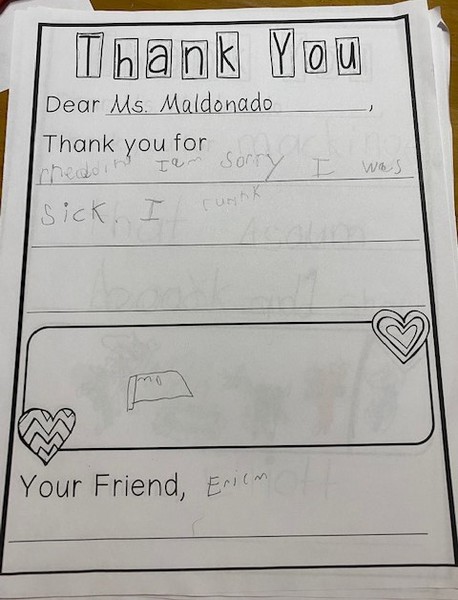 Thank You
Dear Ms. Maldonado,
Thank you for
I am Sorry I was
Sick. I
mo
Your Friend, Ericm